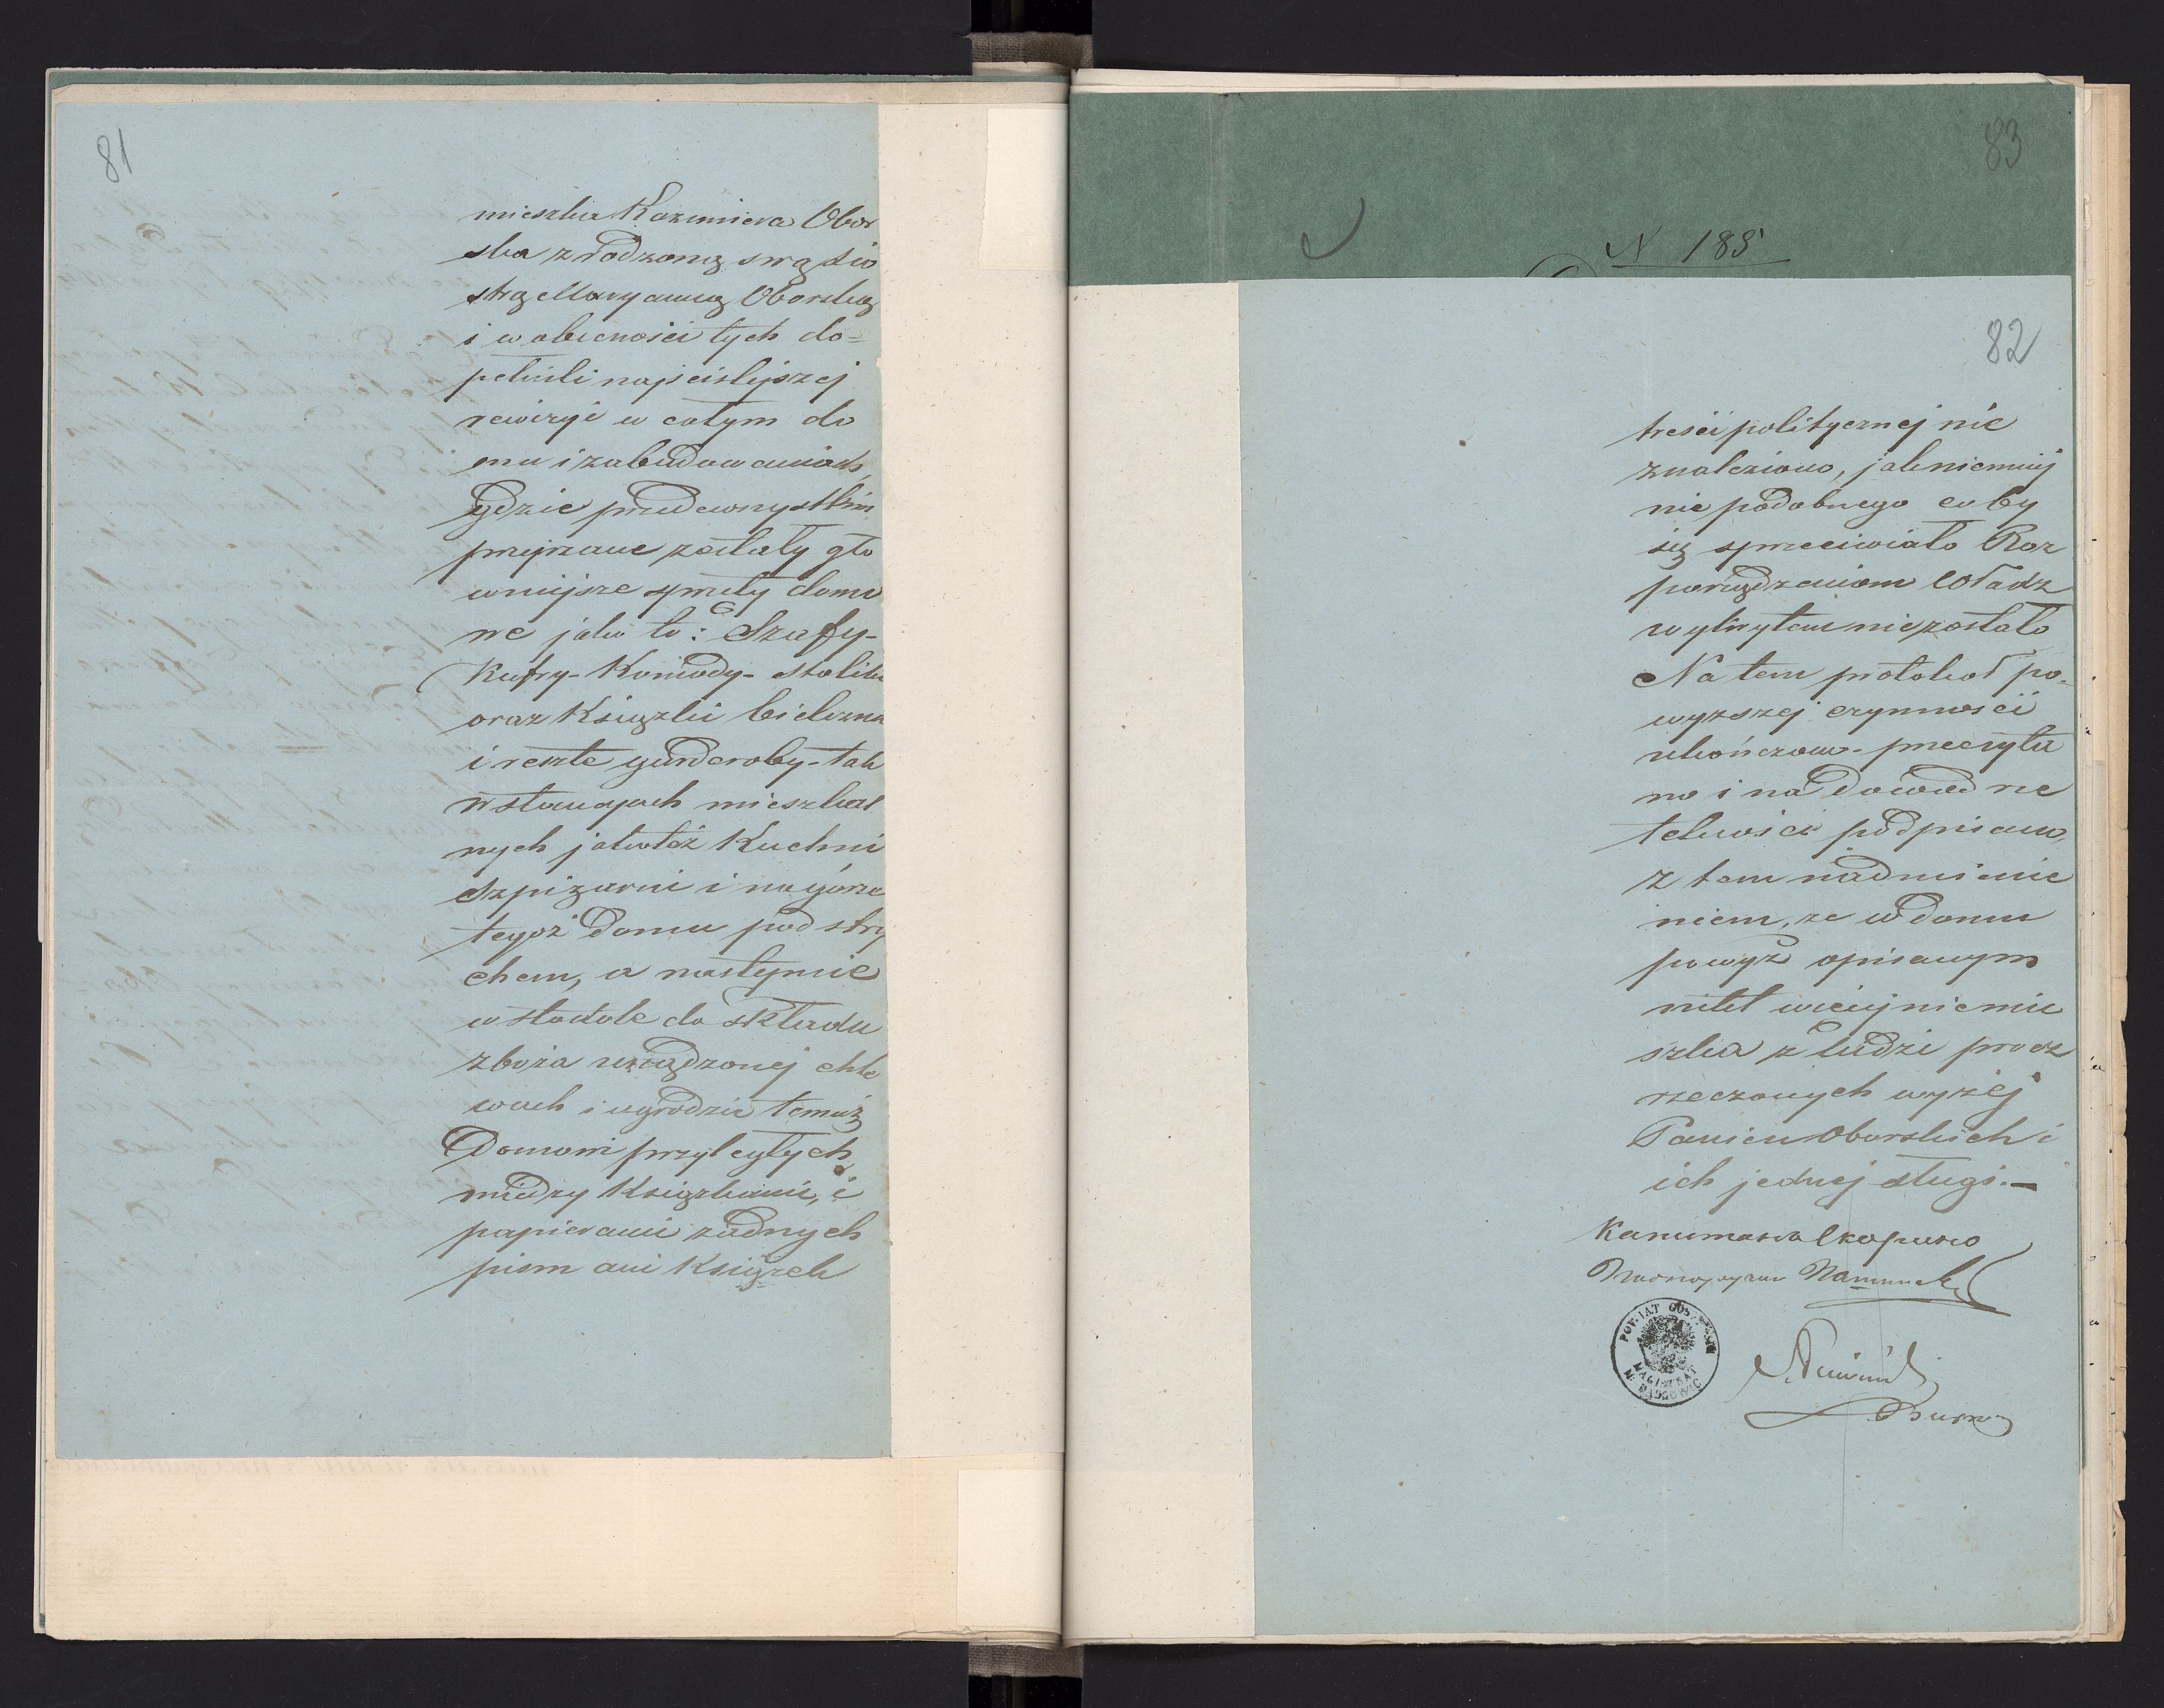 81
mieszka Kazimiera Obor
ska z rodzoną swą sio
strą Maryanną Oborską
i w obecności tych do=
pełnili najściślejszej
rewizyi w całym do
mu i zabudowaniach,
gdzie przedewszystkim
przejrzane zostały głó
wniejsze sprzęty domo
we jako to: Szafy-
Kufry- Komody- stoliki
oraz Książki bielizna
i resztę garderoby- tak
w stancyach mieszkal
nych jakoteż Kuchni
Szpiżarni i na górze
tegoż Domu pod stry
chem, a następnie
w stodole do składu
zboża urządzonej chle
wach i ogrodzie temuż
Domowi przyległych
między Książkami, i
papierami żadnych
pism ani Książek
83
N 185
82
treści politycznej nie
znaleziono, jak niemniej
nic podobnego coby
się sprzeciwiało Roz
porządzeniom Władz
wykrytem nie zostało
Na tem protokół po=
wyższej czynności
ukończono- przeczyta
no i na Dowód rze
telności podpisano,
z tem nadmienie
niem, że w domu
powyż opisanym
nikt więcej niemie
szka z ludzi procz
rzeczonych wyżej
Panien Oborskich i
ich jednej sługi.—
POWIAT GOS
MAGISTRAT
M.
Burm